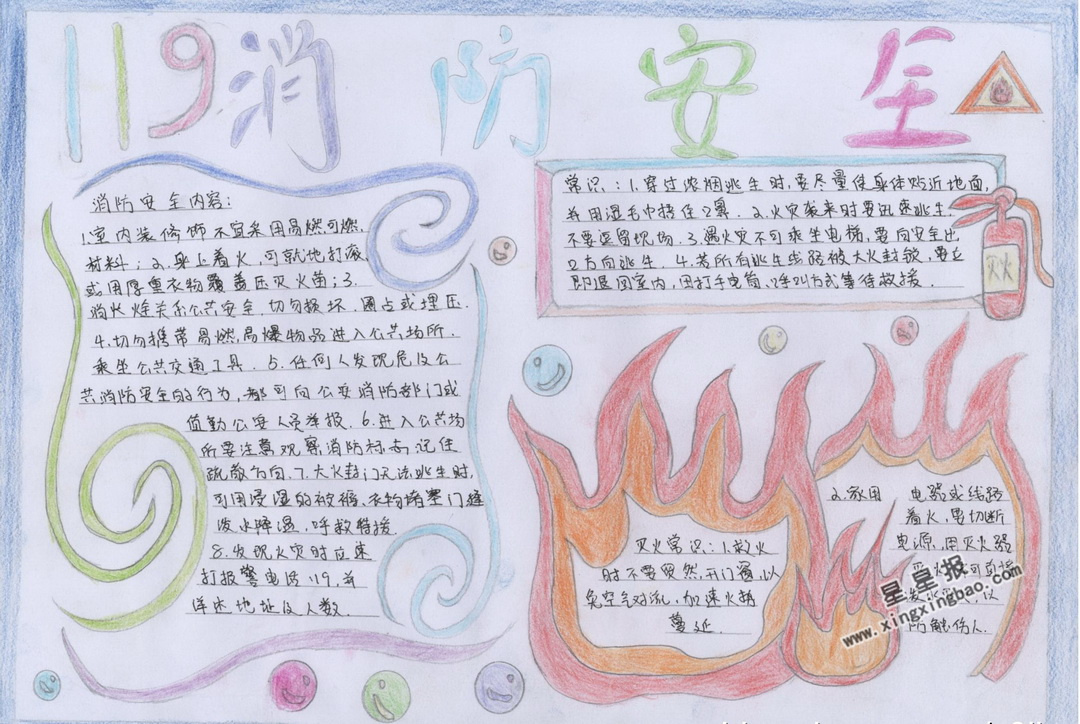 119消防安全
消防安全内容:
1.室内装修饰不宜采用易燃可燃
材料;2.身上着火,可就地打滚,
或用厚重衣物覆盖压灭火苗;3.
消火栓关系公共安全,切勿损坏、圈占或埋压.
4.切勿携带易燃,易爆物品进入公共场所.
乘坐公共交通工具.5.任何人发现危及公
共消防安全的行为,都可向公安消防部门或
值勤公安人员举报.6.进入公共场
所要注意观察消防标志,记住
疏散方向.7.大火封门无法逃生时,
可用浸湿的被褥、衣物堵塞门缝
泼水降温,呼救待援
8.发现火灾时应速
打报警电话119,并
详述地址及人数
常识:1.穿过浓烟逃生时,要尽量使身体贴近地面,
并用湿毛巾捂住口鼻.2.火灾袭来时要迅速逃生.
不要返留现场.3.遇火灾不可乘坐电梯,要向安全出
口方向逃生.4.若所有逃生线路被大火封锁,要立
即退回室内,用打手电筒、呼叫方式等待救援.
灭火
灭火常识:1.救火
时不要贸然开门窗,以
免空气对流,加速火势
蔓延.
2.家用 电器或线路
着火,要切断
电源,用灭火器
防触伤人.
星星报
www.xingxingbao.com